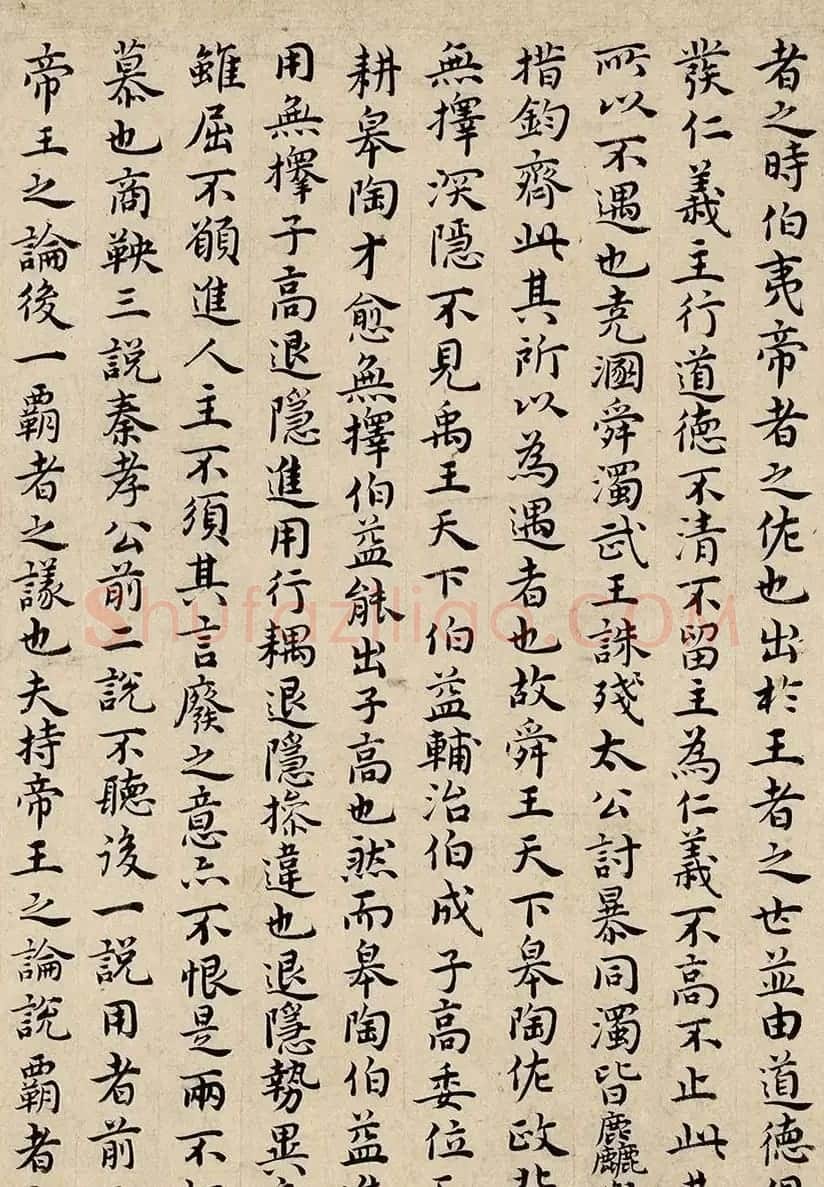 者之時伯夷帝者之佐也出於王者之世並由道德
發仁義主行道德不清不留主為仁義不高不止此
所以不遇也堯溷舜濁武王誅殘太公討暴同濁皆麤
措鈞齊此其所以為遇者也故舜王天下皋陶佐政
無擇深隱不見禹王天下伯益輔治伯成子高委位
耕皋陶才愈無擇伯益能出子高也然而皋陶伯益
用無擇子高退隱進用行耦退隱操違也退隱勢異
雖屈不願進人主不須其言廢之意亦不恨是兩不
慕也商鞅三說秦孝公前二說不聽後一說用者前
帝王之論後一覇者之議也夫持帝王之論說覇者
Shufaziliao.COM